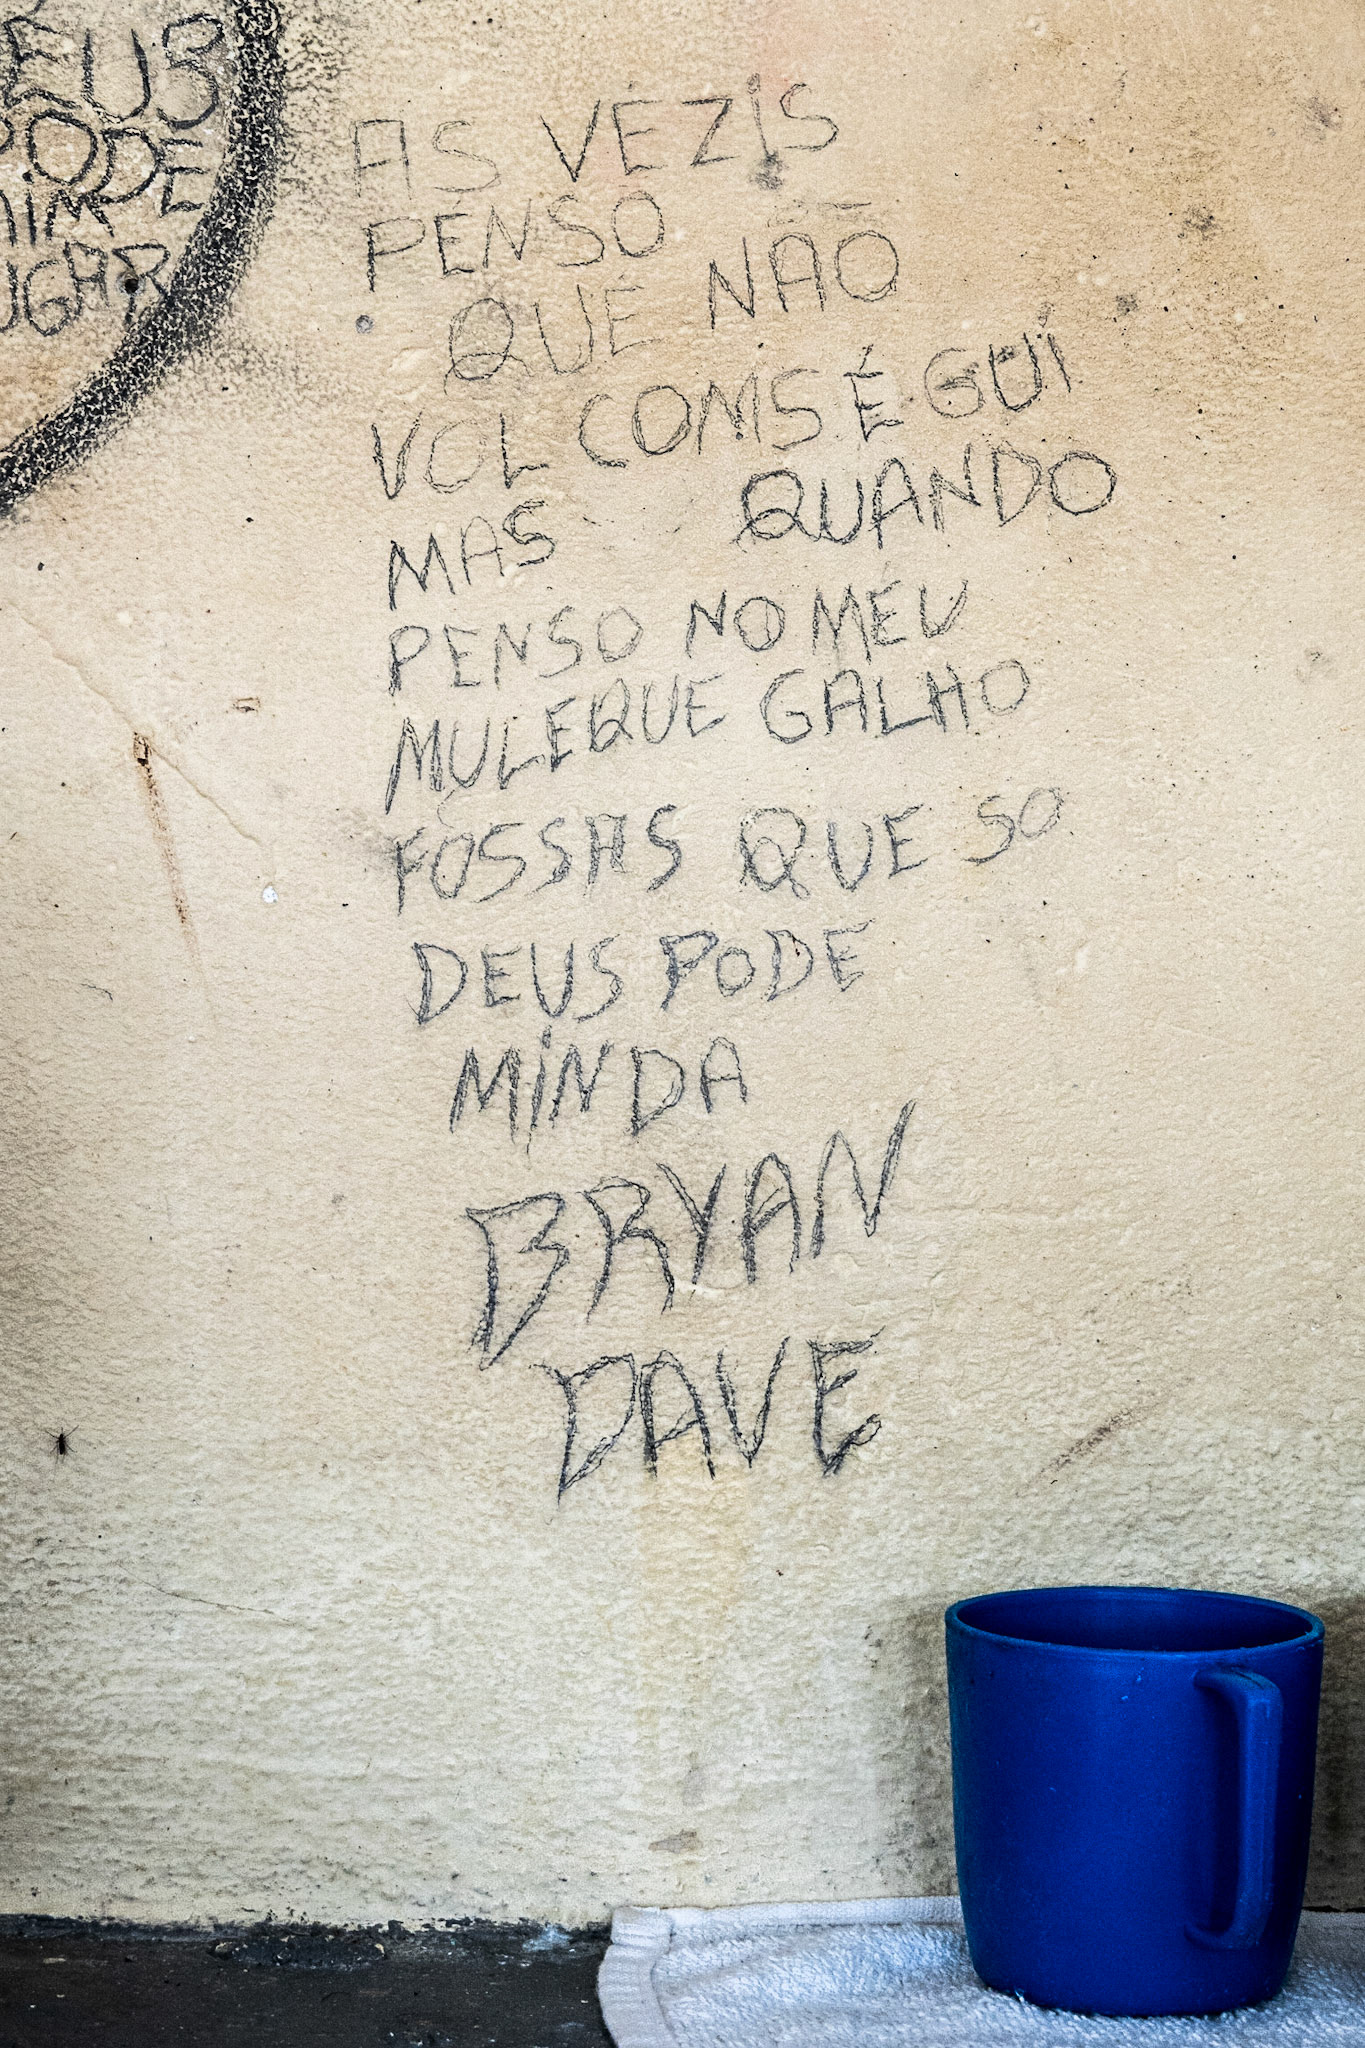 EUS
PODE
MIM
UGAR
AS VEZIS
PENSO
QUE NÃO
VOL COMSÉGUI
MAS QUANDO
PENSO NO MEU
MULEQUE GALHO
FOSSAS QUE SO
DEUS PODE
MINDA
BRYAN
DAVE